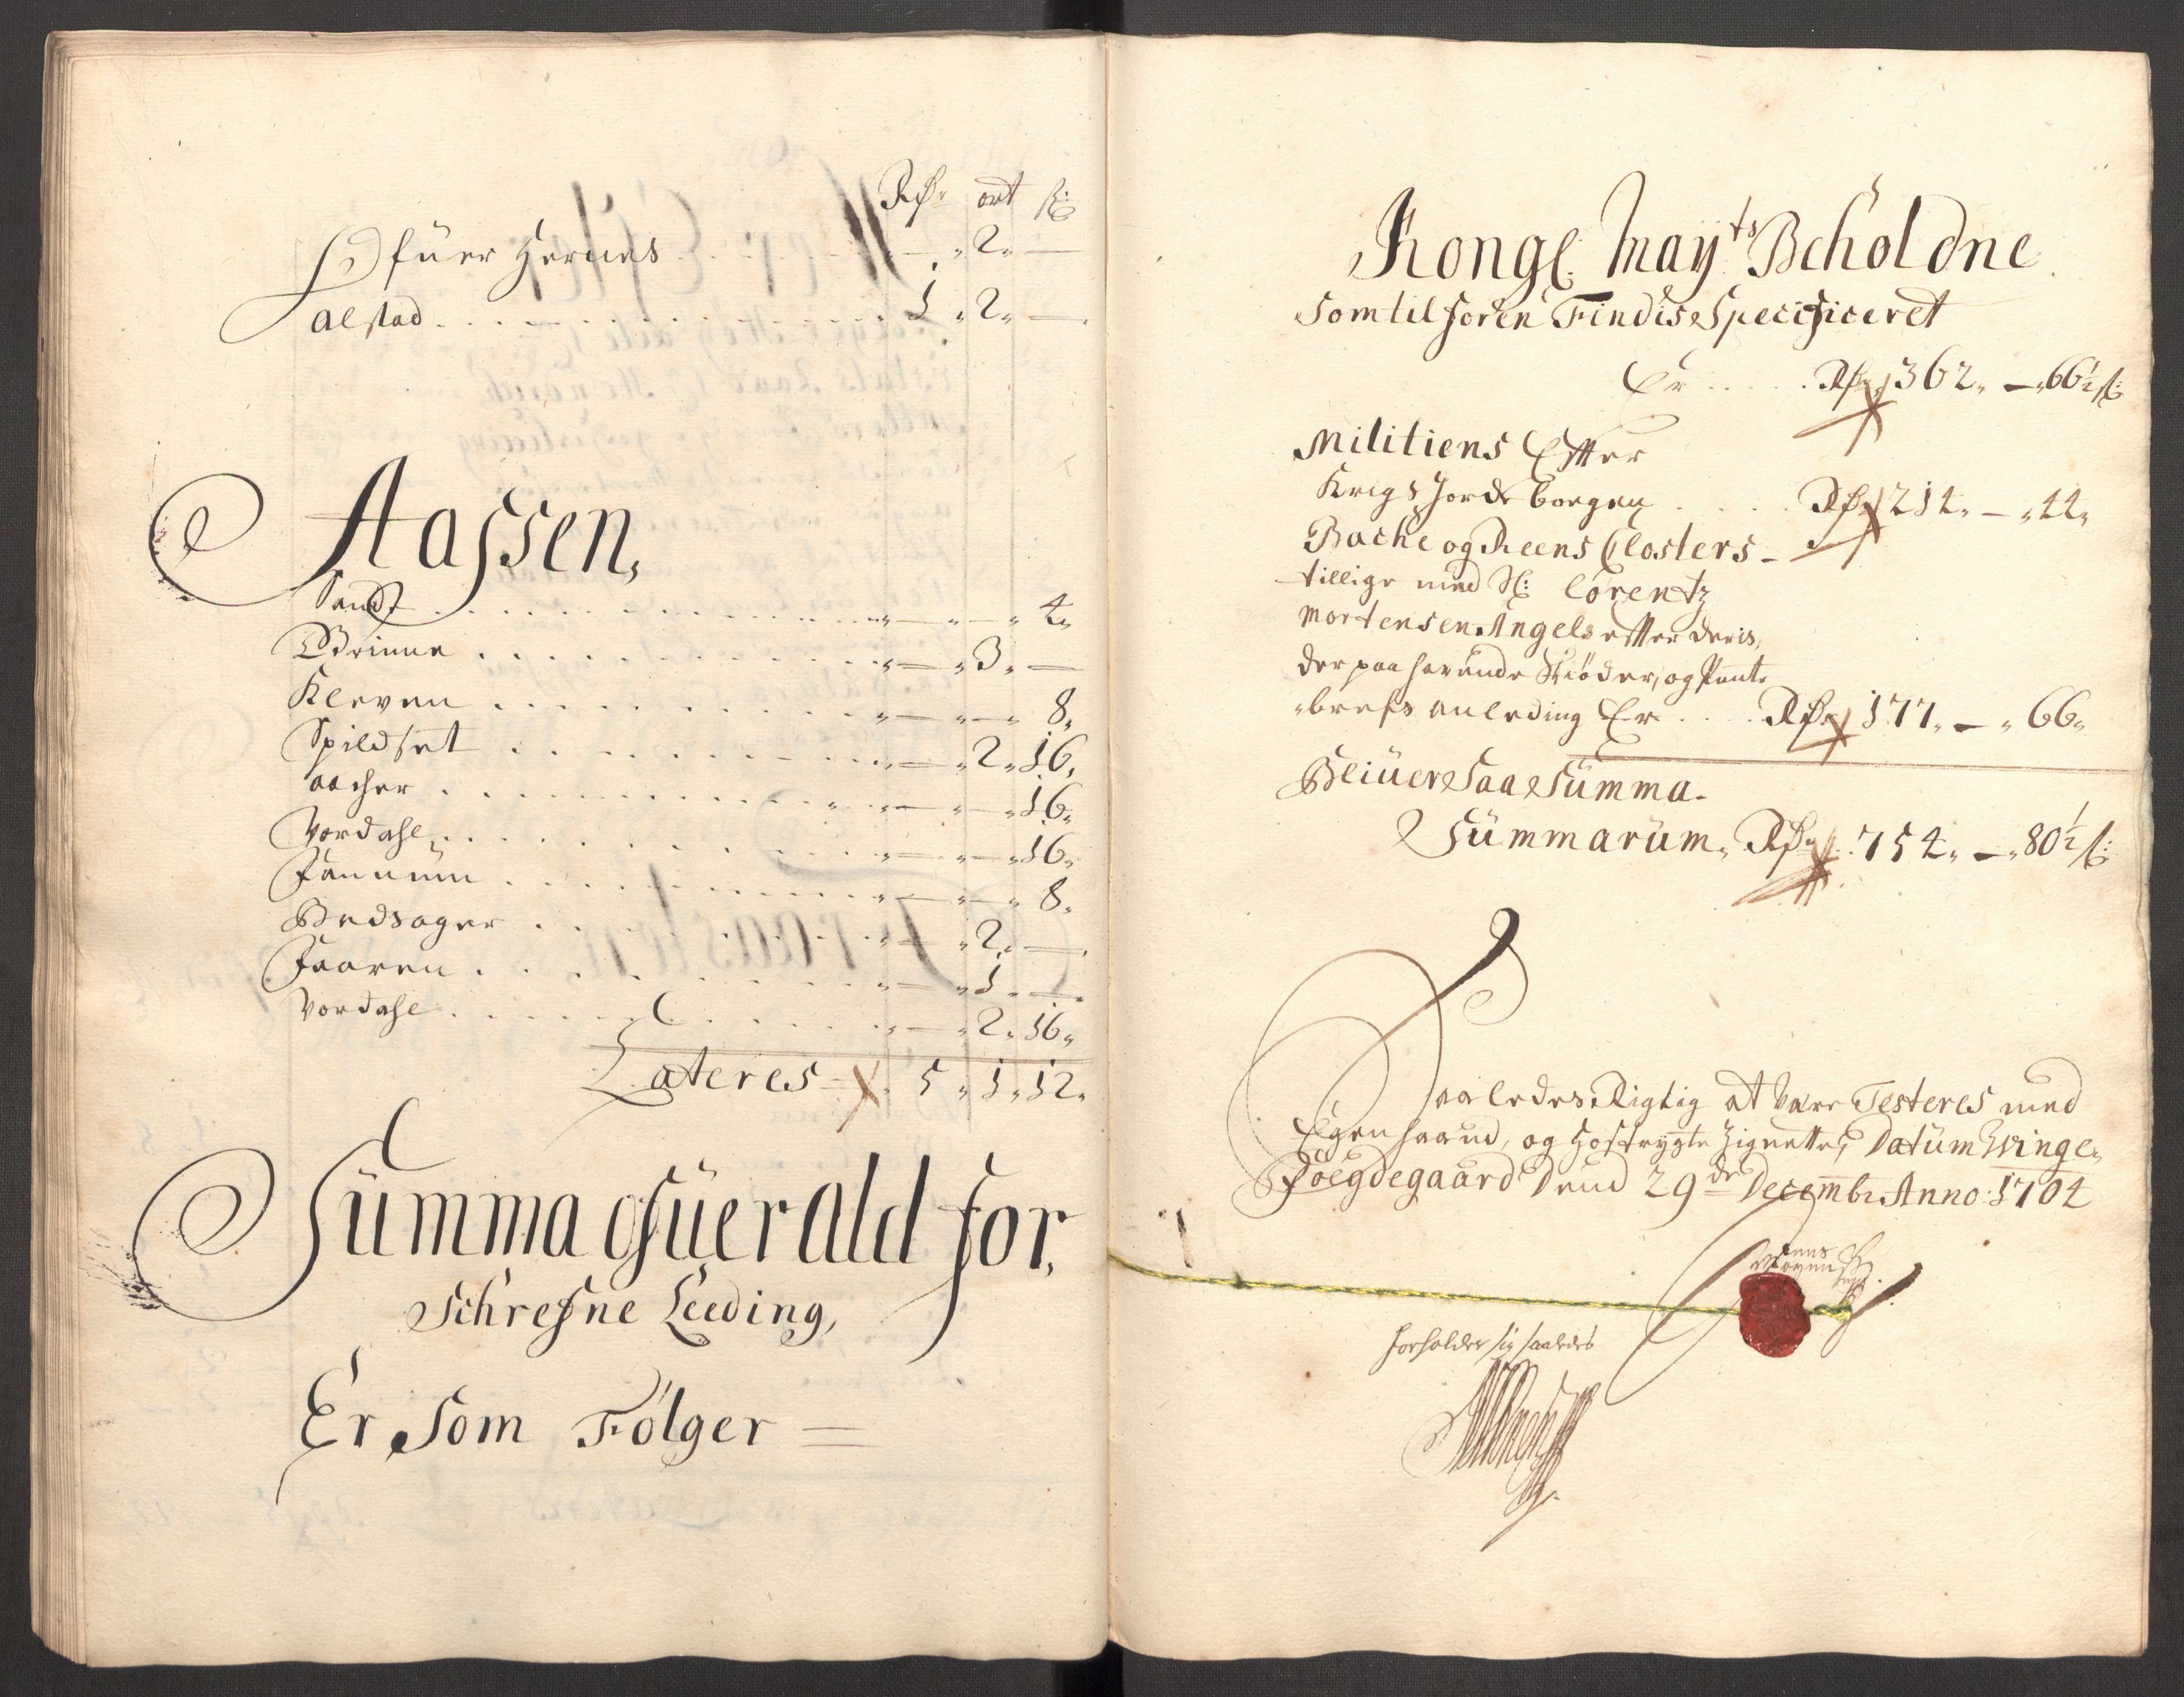 Rdr ort s:
Ofuer Hernes . . . — 2 —
Alstad . . . 1 2 —
Aassen,
Sand . . . — — 4
Brinne . . . — 3 —
Kleven . . . — — 8
Spildset . . . — 2 16
Aacher . . . — — 16
Vordahl . . . — — 16
Fannum . . . — — 8
Bedsager . . . — 2 —
Faaren . . . — 1 —
Vordahl . . . — 2 16
Lateres 5 1 12
Summa ofuer Ald for,
Schrefne Leeding,
Er Som Følger =
Kongl: Mayts Beholdne
Som til foren Findis Specificeret
Er . . . Rdr 362 — 66½ s:
Militiens Efter
Krigs Jorde bogen . . . Rdr 214 — 44
Bache og Reens Closters
tillige med Sl: Lorentz
Mortensen Angels efter deris,
der paa havende Skiøder, og Pant
brefs anleding Er . . . Rdr 177 — 66
Bliuer Saa Summa
Summarum, Rdr 754 — 80½ s:
Saaledes Rigtig at være Testeres med
Egen haand, og hostrygte Zignette, Datum Hvinge
Foegdegaard Dend 29de Decembr Anno 1704
forholder sig saaledes